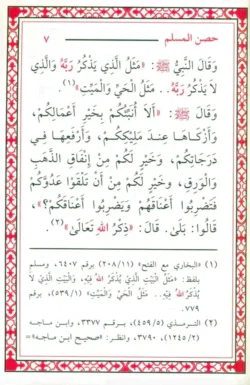 حصن المسلم
٧
وَقَالَ النَّبِيُّ ﷺ: «مَثَلُ الَّذِي يَذْكُرُ رَبَّهُ وَالَّذِي
لَا يَذْكُرُ رَبَّهُ.. مَثَلُ الْحَيِّ وَالْمَيِّتِ»(١).
وَقَالَ ﷺ: «أَلَا أُنَبِّئُكُمْ بِخَيْرِ أَعْمَالِكُمْ،
وَأَزْكَاهَا عِنْدَ مَلِيكِكُمْ، وَأَرْفَعِهَا فِي
دَرَجَاتِكُمْ، وَخَيْرٍ لَكُمْ مِنْ إِنْفَاقِ الذَّهَبِ
وَالْوَرِقِ، وَخَيْرٍ لَكُمْ مِنْ أَنْ تَلْقَوْا عَدُوَّكُمْ
فَتَضْرِبُوا أَعْنَاقَهُمْ وَيَضْرِبُوا أَعْنَاقَكُمْ؟»
قَالُوا: بَلَىٰ. قَالَ: «ذِكْرُ اللهِ تَعَالَىٰ»(٢).
(١) «البخاري مع الفتح» (٢٠٨/١١) برقم ٦٤٠٧، ومسلم
بلفظ: «مَثَلُ الْبَيْتِ الَّذِي يُذْكَرُ اللهُ فِيهِ، وَالْبَيْتِ الَّذِي لَا
يُذْكَرُ اللهُ فِيهِ.. مَثَلُ الْحَيِّ وَالْمَيِّتِ» (٥٣٩/١)، برقم
٧٧٩.
(٢) الترمذي (٤٥٩/٥)، برقم ٣٣٧٧، وابن ماجه
(١٢٤٥/٢)، ٣٧٩٠، وانظر: «صحيح ابن ماجه» =